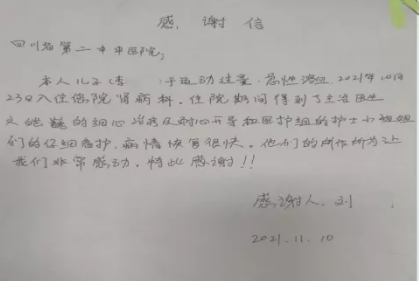 感谢信
四川省第二中中医院:
本人儿子(李 )于运动过量,急性溶血 2021年10月
23日入住贵院肾病科。住院期间得到了主治医生
的细心治疗及耐心开导和医护组的护士小姐姐
们的仔细看护,病情恢复很快。他们的所作所为让
我们非常感动。特此感谢!!
感谢人:刘
2021.11.10